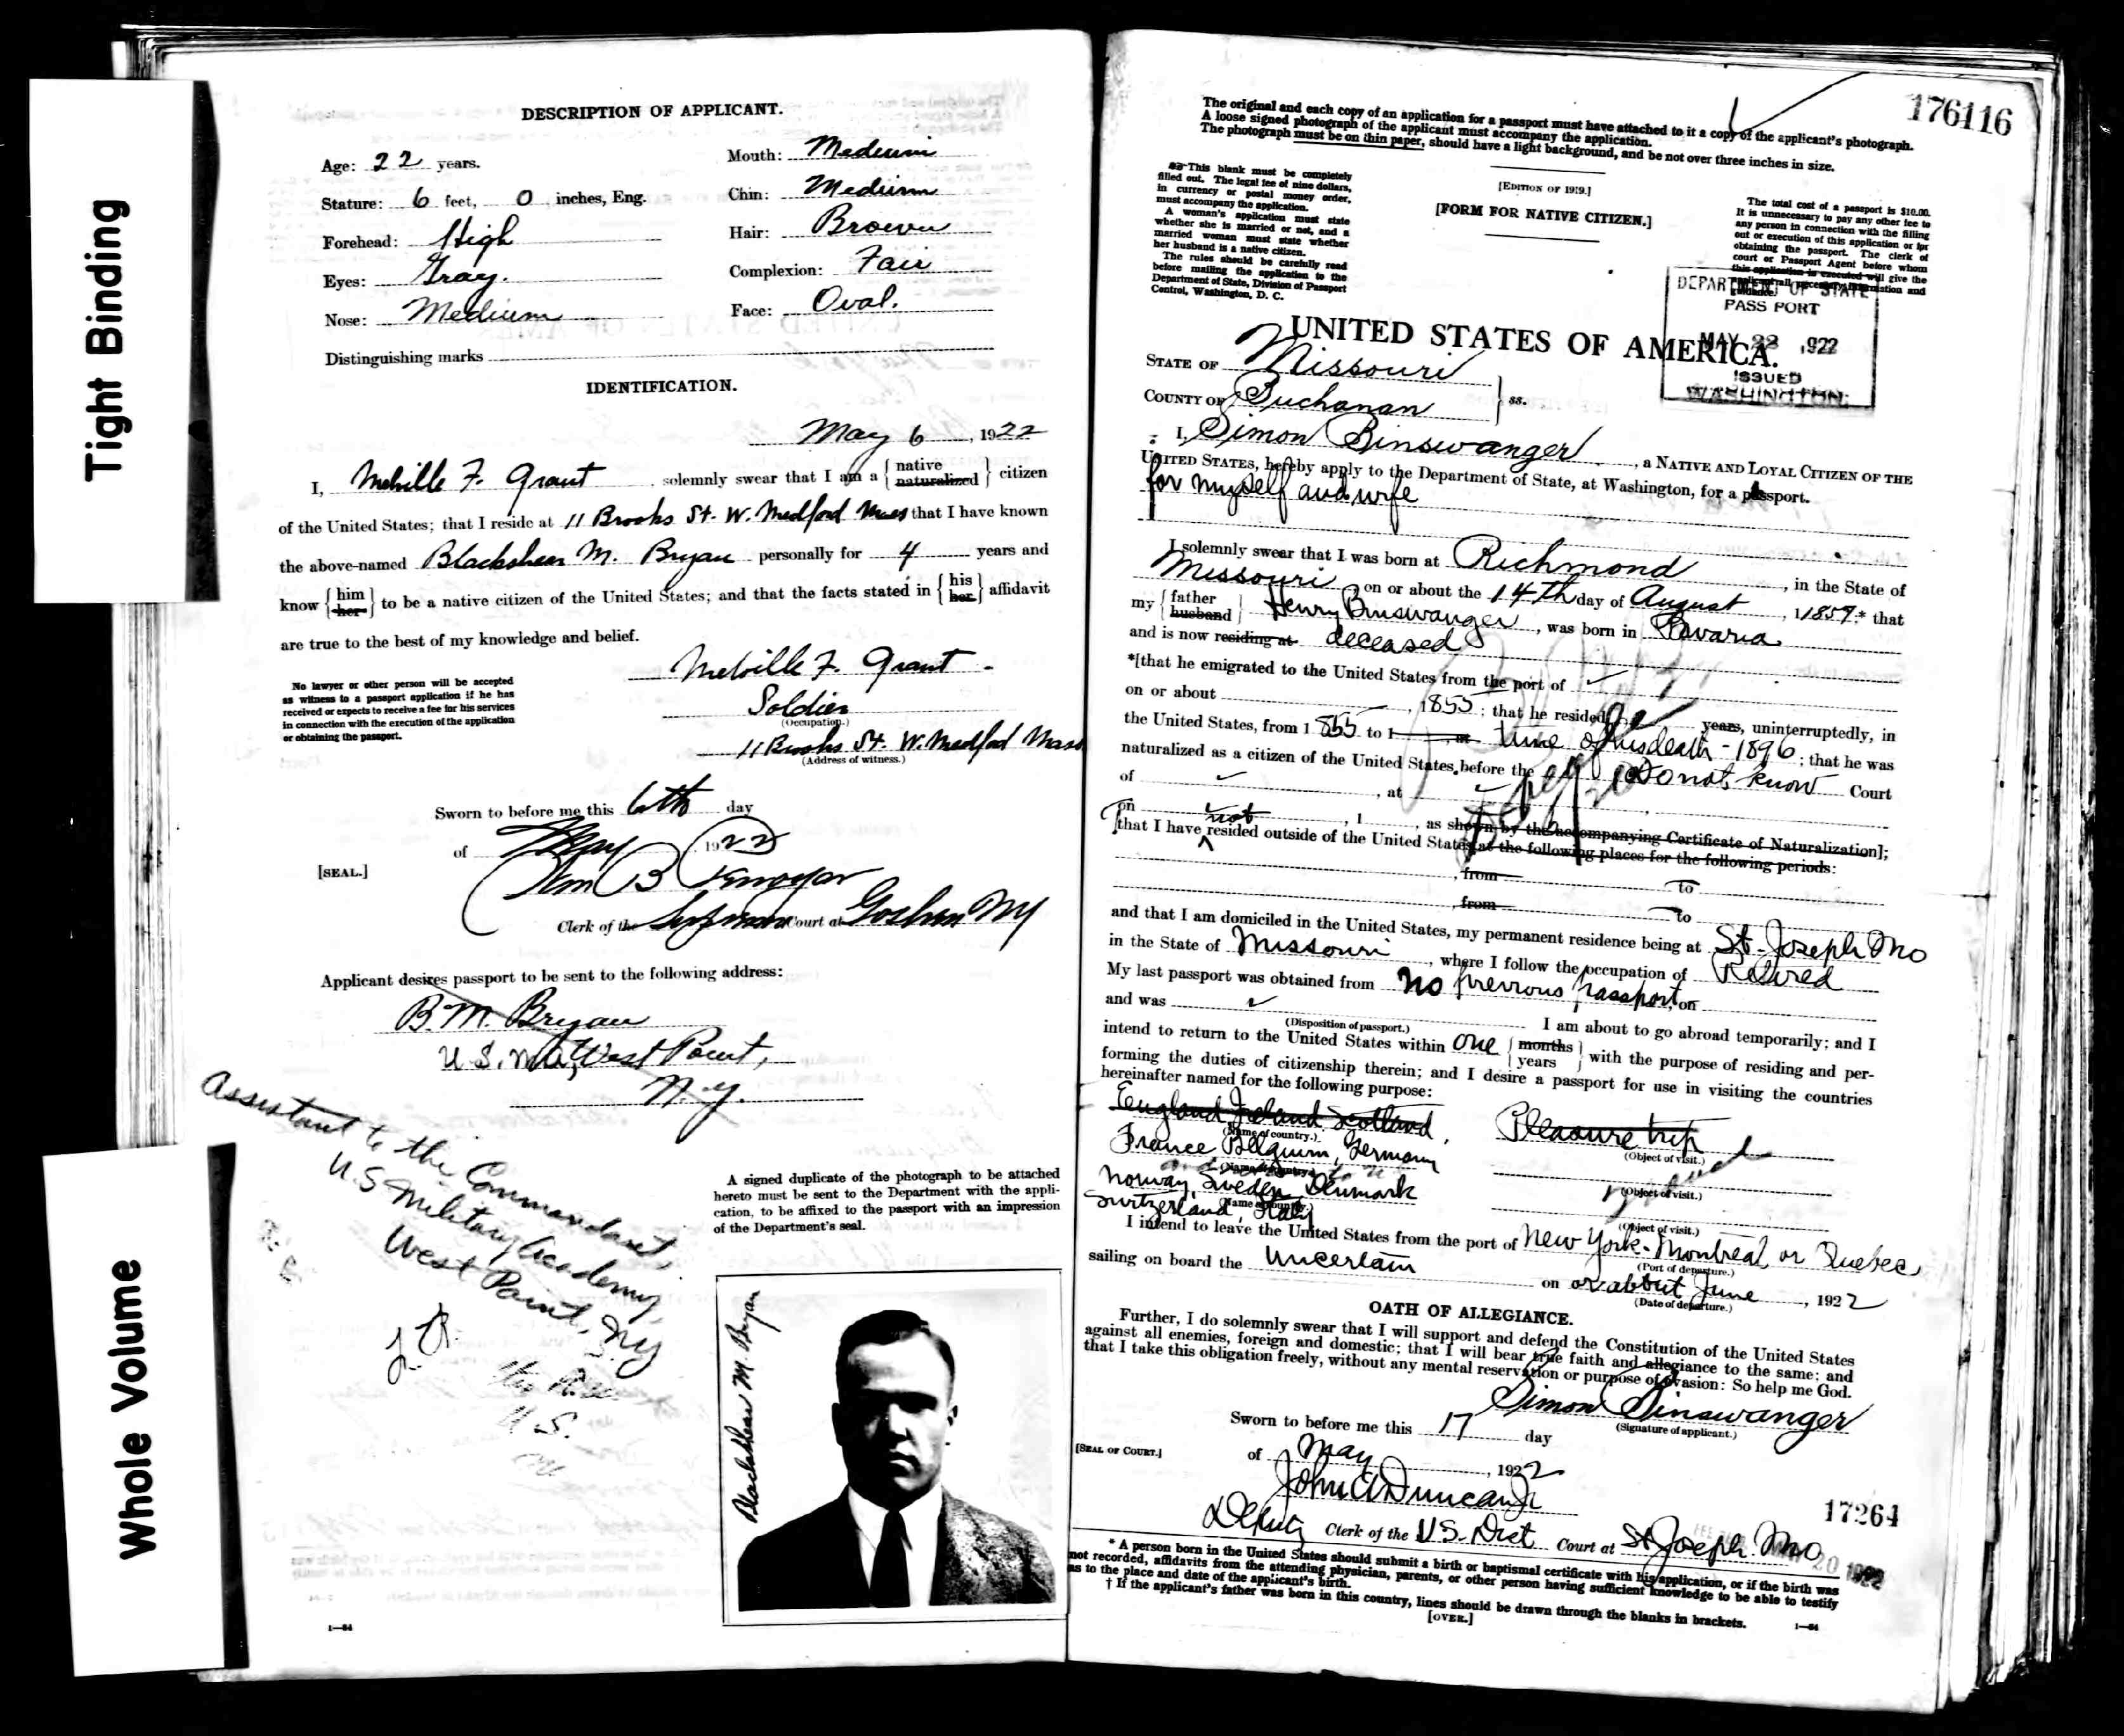 Tight Binding
Whole Volume
DESCRIPTION OF APPLICANT.
Age: 22 years.
Stature: 6 feet, 0 inches, Eng.
Forehead: High
Eyes: Gray.
Nose: Medium
Mouth: Medium
Chin: Medium
Hair: Brown
Complexion: Fair
Face: Oval.
Distinguishing marks
IDENTIFICATION.
May 6, 1922
I, Melville F. Grant, solemnly swear that I am a { native naturalized } citizen
of the United States; that I reside at 11 Brooks St. W. Medford Mass that I have known
the above-named Blackshear M. Bryan personally for 4 years and
know { him her } to be a native citizen of the United States; and that the facts stated in { his her } affidavit
are true to the best of my knowledge and belief.
No lawyer or other person will be accepted
as witness to a passport application if he has
received or expects to receive a fee for his services
in connection with the execution of the application
or obtaining the passport.
Melville F. Grant
Soldier
(Occupation.)
11 Brooks St. W. Medford Mass
(Address of witness.)
Sworn to before me this 6th day
of May 1922
[SEAL.]
Clerk of the Supreme Court at Goshen NY
Applicant desires passport to be sent to the following address:
B. M. Bryan
U.S.M.A., West Point,
N.Y.
Assistant to the Commandant,
U.S Military Academy,
West Point, NY
A signed duplicate of the photograph to be attached
hereto must be sent to the Department with the appli-
cation, to be affixed to the passport with an impression
of the Department's seal.
Blackshear M. Bryan
1—84
176116
The original and each copy of an application for a passport must have attached to it a copy of the applicant's photograph.
A loose signed photograph of the applicant must accompany the application.
The photograph must be on thin paper, should have a light background, and be not over three inches in size.
This blank must be completely
filled out. The legal fee of nine dollars,
in currency or postal money order,
must accompany the application.
A woman's application must state
whether she is married or not, and a
married woman must state whether
her husband is a native citizen.
The rules should be carefully read
before mailing the application to the
Department of State, Division of Passport
Control, Washington, D. C.
[EDITION OF 1919.]
[FORM FOR NATIVE CITIZEN.]
The total cost of a passport is $10.00.
It is unnecessary to pay any other fee to
any person in connection with the filling
out or execution of this application or for
obtaining the passport. The clerk of
court or Passport Agent before whom
this application is executed will give the
applicant all necessary information and
DEPARTMENT OF STATE
PASS PORT
MAY 22 1922
ISSUED
WASHINGTON.
UNITED STATES OF AMERICA.
STATE OF Missouri
COUNTY OF Buchanan } ss.
I, Simon Binswanger, a NATIVE AND LOYAL CITIZEN OF THE
UNITED STATES, hereby apply to the Department of State, at Washington, for a passport.
for myself and wife
I solemnly swear that I was born at Richmond, in the State of
Missouri, on or about the 14th day of August, 1859;* that
my { father husband } Henry Binswanger, was born in Bavaria
and is now residing at deceased
*[that he emigrated to the United States from the port of
on or about, 1855; that he resided years, uninterruptedly, in
the United States, from 1855 to 1 time of his death - 1896; that he was
naturalized as a citizen of the United States before the Do not know Court
of, at
on, 1, as shown by the accompanying Certificate of Naturalization];
that I have not resided outside of the United States at the following places for the following periods:
, from to
, from to
and that I am domiciled in the United States, my permanent residence being at St. Joseph Mo
in the State of Missouri, where I follow the occupation of Retired
My last passport was obtained from No previous passport, on
and was
(Disposition of passport.)
I am about to go abroad temporarily; and I
intend to return to the United States within one { months years } with the purpose of residing and per-
forming the duties of citizenship therein; and I desire a passport for use in visiting the countries
hereinafter named for the following purpose:
England Ireland Scotland, Pleasure trip
(Name of country.) (Object of visit.)
France Belgium, Germany
(Name of country.) (Object of visit.)
Norway, Sweden, Denmark
(Name of country.) (Object of visit.)
Switzerland, Italy
I intend to leave the United States from the port of New York - Montreal or Quebec
(Port of departure.)
sailing on board the Uncertain on or about June, 1922
(Date of departure.)
OATH OF ALLEGIANCE.
Further, I do solemnly swear that I will support and defend the Constitution of the United States
against all enemies, foreign and domestic; that I will bear true faith and allegiance to the same; and
that I take this obligation freely, without any mental reservation or purpose of evasion: So help me God.
Simon Binswanger
(Signature of applicant.)
Sworn to before me this 17 day
[SEAL OF COURT.]
of May, 1922
John A Duncan Jr
Deputy Clerk of the U.S. Dist Court at St Joseph Mo
17264
* A person born in the United States should submit a birth or baptismal certificate with his application, or if the birth was
not recorded, affidavits from the attending physician, parents, or other person having sufficient knowledge to be able to testify
as to the place and date of the applicant's birth.
† If the applicant's father was born in this country, lines should be drawn through the blanks in brackets.
[OVER.]
1—84